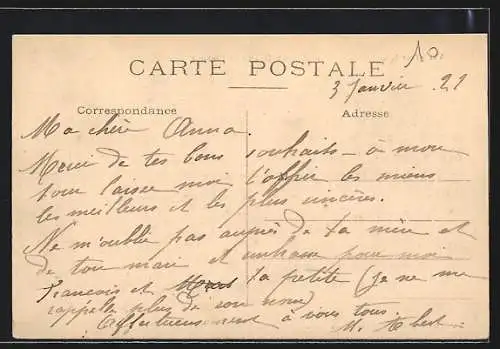 10
CARTE POSTALE
3 Janvier 21
Correspondance
Adresse
Ma chère Anna.
Merci de tes bons souhaits – à mon
tour laisse moi t'offrir les miens
les meilleurs et les plus sincères.
Ne m'oublie pas auprès de ta mère et
de ton mari et embrasse pour moi
Francois et ta petite (je ne me
rappelle plus de son nom)
Affectueusement à vous tous.
M.